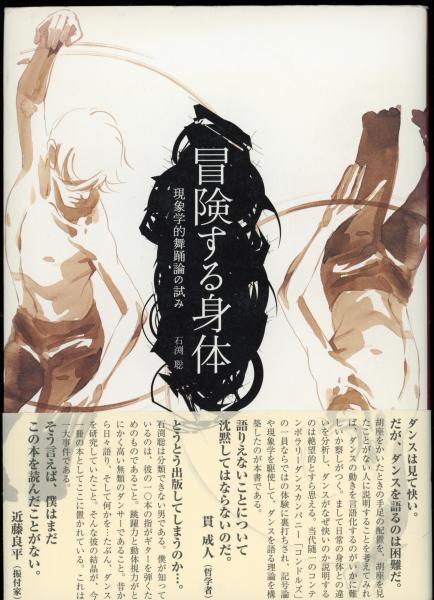 冒険する身体
現象学的舞踊論の試み
石渕 聡
ダンスは見て快い。
だが、ダンスを語るのは困難だ。
胡座をかいたときの手足の配置を、胡座を見
たことがない人に説明することを考えてみれ
ば、ダンスの動きを言語化するのがいかに難
しいか察しがつく。まして日常の身体との違
いを分析し、ダンスがなぜ快いのか説明する
のは絶望的とすら思える。当代随一のコンテ
ンポラリーダンスカンパニー「コンドルズ」
の一員ならではの体験に裏打ちされ、記号論
や現象学を駆使して、ダンスを語る理論を構
築したのが本書である。
語りえないことについて
沈黙してはならないのだ。
貫 成人(哲学者)
とうとう出版してしまうのか…。
石渕聡は分類できない男である。僕が知って
いるのは、彼の一〇本の指がギターを弾くた
めのものであること。跳躍力と動体視力がと
にかく高い無類のダンサーであること。昔か
ら日々語り、そして何かを…たぶん、ダンス
を研究していたこと。そんな彼の結晶が、今
一冊の本としてここに置かれている。これは
一大事件である。
そう言えば、僕はまだ
この本を読んだことがない。
近藤良平(振付家)